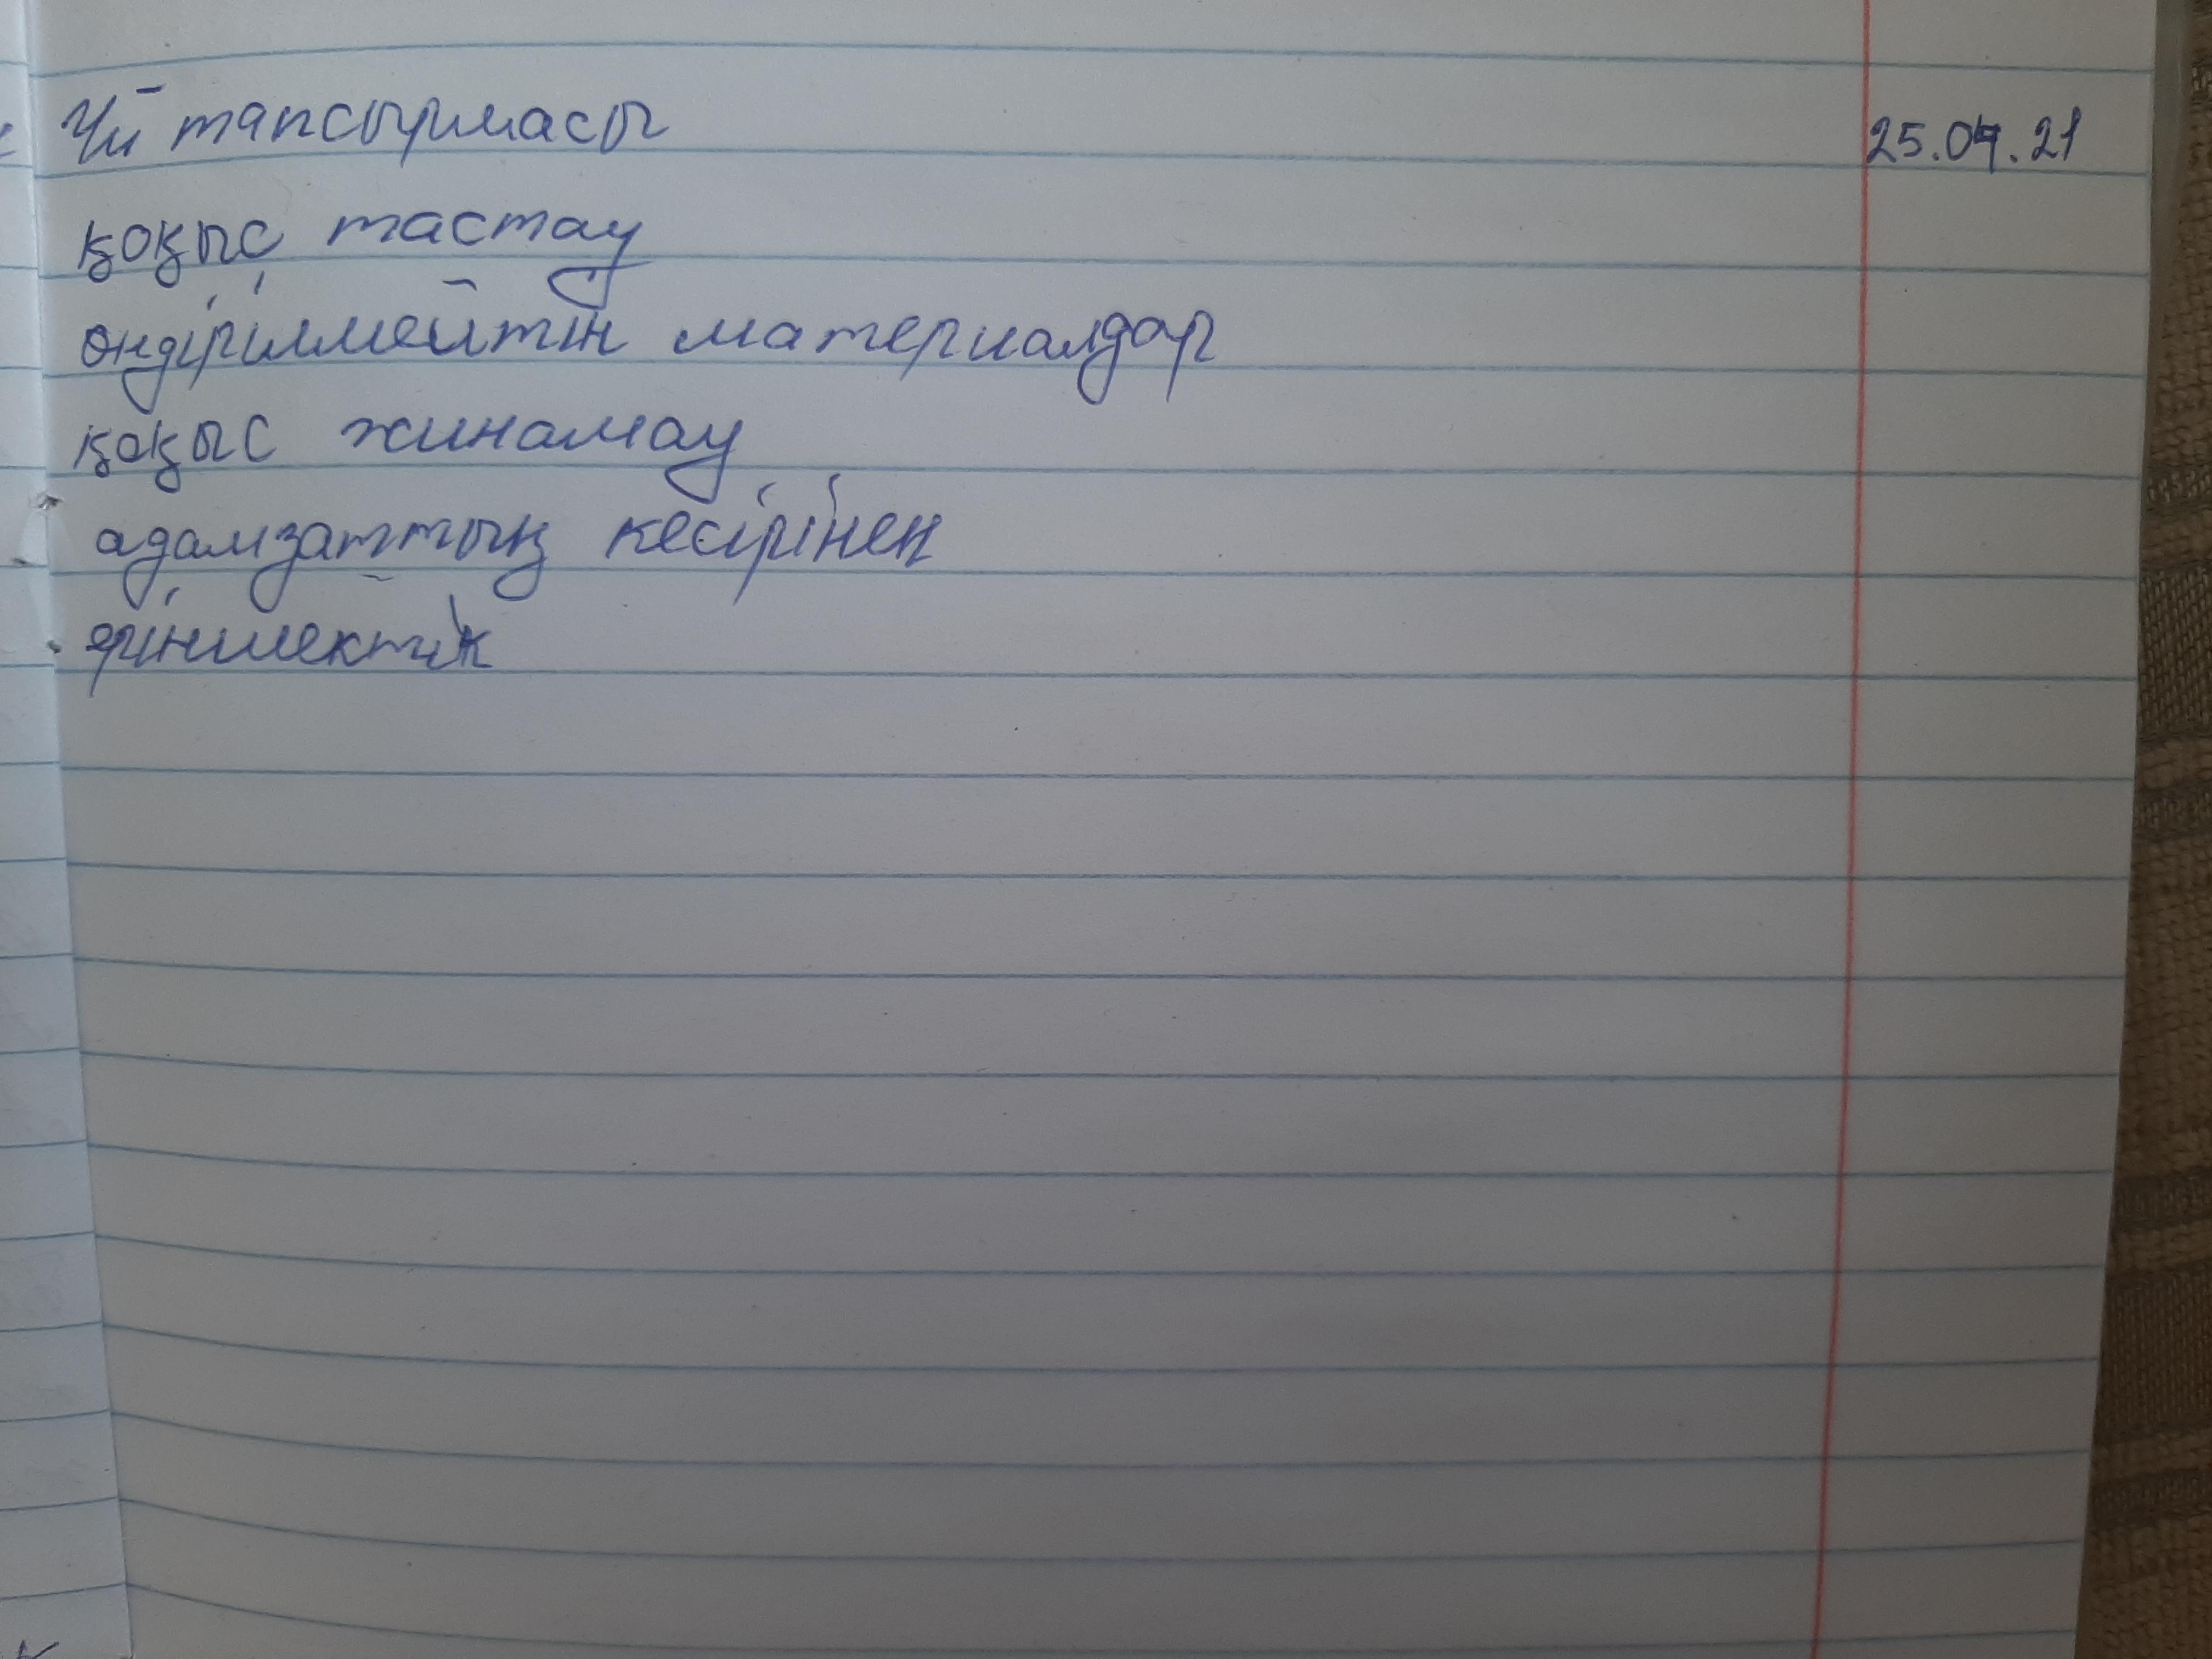 Үй тапсырмасы 25.04.21
қоқыс тастау
өндірілмейтін материалдар
қоқыс жинамау
адамзаттың кесірінен
еріншектік